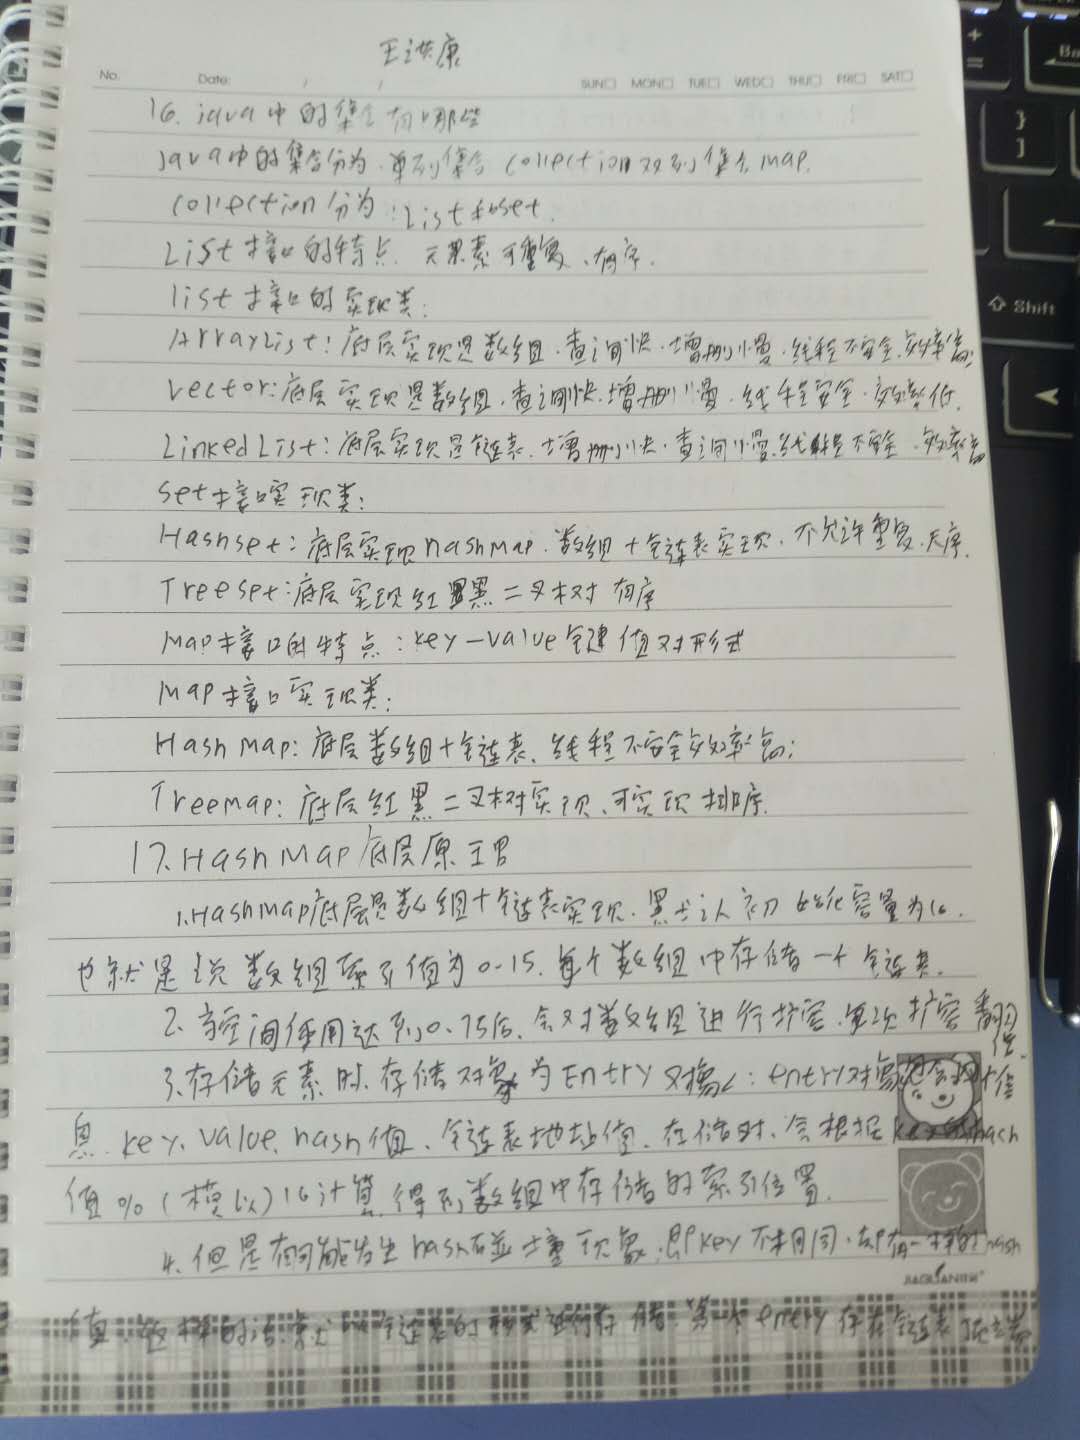 王洪康
No. Date: / / SUN MON TUE WED THU FRI SAT
16. java中的集合有哪些
java中的集合分为.单列集合 collection 双列集合 map.
collection分为:list和set.
List接口的特点.元素可重复、有序.
list接口的实现类:
ArrayList:底层实现是数组.查询快.增删慢.线程不安全.效率高;
Vector:底层实现是数组.查询快.增删慢.线程安全.效率低.
LinkedList:底层实现是链表.增删快.查询慢.线程不安全.效率高
set接口实现类:
Hashset:底层实现hashMap.数组+链表实现.不允许重复.无序.
Treeset:底层实现红黑二叉树 有序
Map接口的特点:key-value键值对形式
Map接口实现类:
HashMap:底层数组+链表、线程不安全效率高;
Treemap:底层红黑二叉树实现、可实现排序.
17.HashMap底层原理
1.HashMap底层是数组+链表实现.默认初始化容量为16.
也就是说数组索引值为0-15.每个数组中存储一个链表.
2.当空间使用达到0.75后.会对数组进行扩容.每次扩容翻倍.
3.存储元素时.存储对象为Entry对象:entry对象包含四个信
息.key、value、hash值、链表地址值.存储时、会根据key的hash
值%(模以)16计算.得到数组中存储的索引位置.
4.但是有可能发生hash碰撞现象:即key不相同.却有一样的hash
JIAGUANTIN
值.这样的话.就以链表的形式进行存储.第一个entry存在链表顶端
+
=
Ba
}
]
Shift